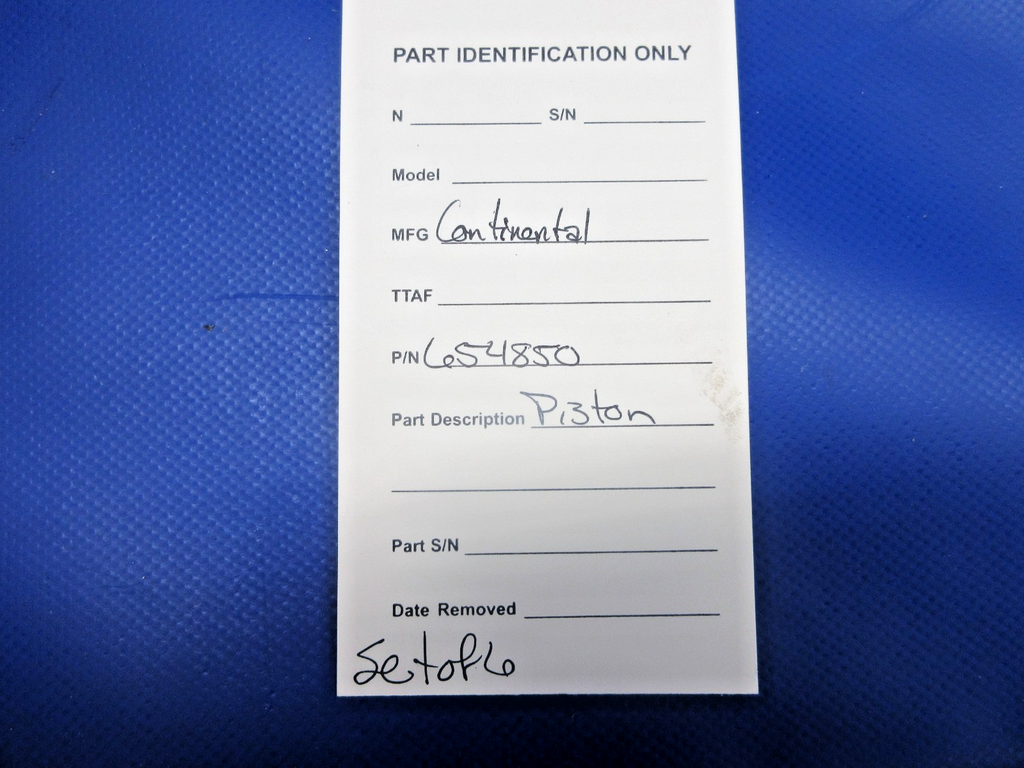 PART IDENTIFICATION ONLY
N S/N
Model
MFG Continental
TTAF
P/N 654850
Part Description Piston
Part S/N
Date Removed
Set of 6